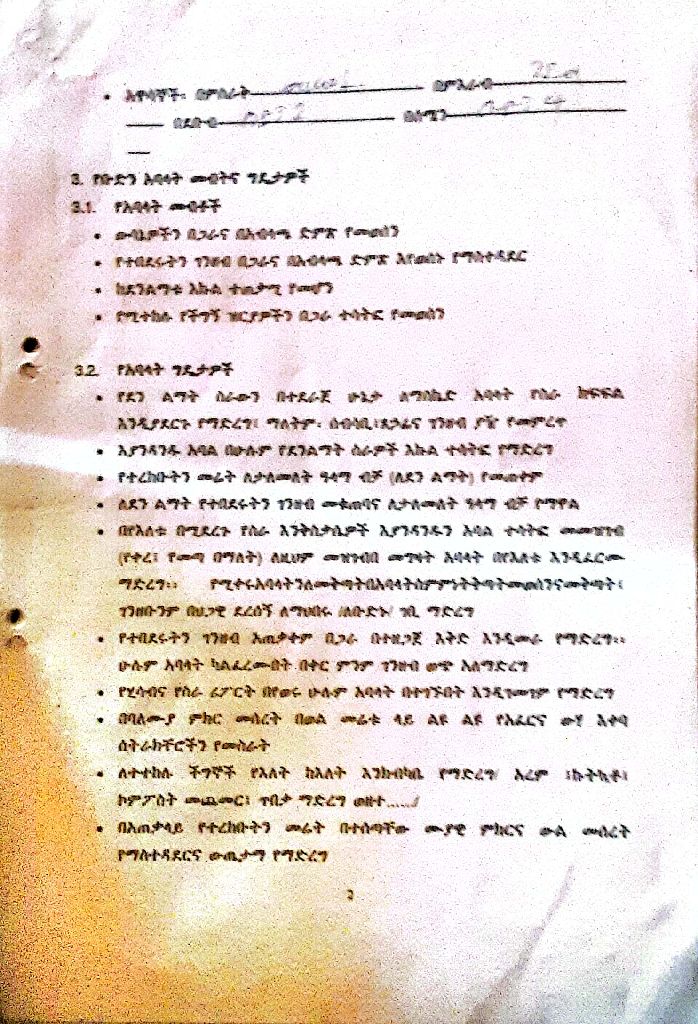 • አዋሳኞች፡ በምስራቅ በምእራብ
በደቡብ በሰሜን
3. የቡድን አባላት መብትና ግዴታዎች
3.1. የአባላት መብቶች
• ውሳኔዎችን በጋራና በአብላጫ ድምጽ የመወሰን
• የተበደሩትን ገንዘብ በጋራና በአብላጫ ድምጽ እየወሰኑ የማስተዳደር
• ከደንልማቱ እኩል ተጠቃሚ የመሆን
• የሚተከሉ የችግኝ ዝርያዎችን በጋራ ተሳትፎ የመወሰን
3.2. የአባላት ግዴታዎች
• የደን ልማት ስራውን በተደራጀ ሁኔታ ለማስኬድ አባላት የስራ ክፍፍል
እንዲያደርጉ የማድረግ፤ ማለትም፡ ሰብሳቢ፣ጸኃፊና ገንዘብ ያዥ የመምረጥ
• እያንዳንዱ አባል በሁሉም የደንልማት ስራዎች እኩል ተሳትፎ የማድረግ
• የተረከቡትን መሬት ለታለመለት ዓላማ ብቻ (ለደን ልማት) የመጠቀም
• ለደን ልማት የተበደሩትን ገንዘብ መቆጠብና ለታለመለት ዓላማ ብቻ የማዋል
• በየእለቱ በሚደረጉ የስራ እንቅስቃሴዎች እያንዳንዱን አባል ተሳትፎ መመዝገብ
(የቀረ፤ የመጣ በማለት) ለዚህም መዝገብበ መግዛት አባላት በየእለቱ እንዲፈርሙ
ማድረግ፡፡ የሚቀሩአባላትንለመቅጣትበአባላትስምምነትቅጣትመወሰንናመቅጣት፤
ገንዘቡንም በህጋዊ ደረሰኝ ለማህበሩ /ለቡድኑ/ ገቢ ማድረግ
• የተበደሩትን ገንዘብ አጠቃቀም በጋራ በተዘጋጀ እቅድ እንዲመራ የማድረግ፡፡
ሁሉም አባላት ካልፈረሙበት በቀር ምንም ገንዘብ ወጭ አለማድረግ
• የሂሳብና የስራ ሪፖርት በየወሩ ሁሉም አባላት በተገኙበት እንዲገመገም የማድረግ
• በባለሙያ ምክር መሰረት በወል መሬቱ ላይ ልዩ ልዩ የአፈርና ውሃ እቀባ
ስትራክቸሮችን የመስራት
• ለተተከሉ ችግኞች የእለት ከእለት እንክብካቤ የማድረግ/ አረም ፣ኩትኳቶ፣
ኮምፖስት መጨመር፤ ጥበቃ ማድረግ ወዘተ...../
• በአጠቃላይ የተረከቡትን መሬት በተሰጣቸው ሙያዊ ምክርና ውል መሰረት
የማስተዳደርና ውጤታማ የማድረግ